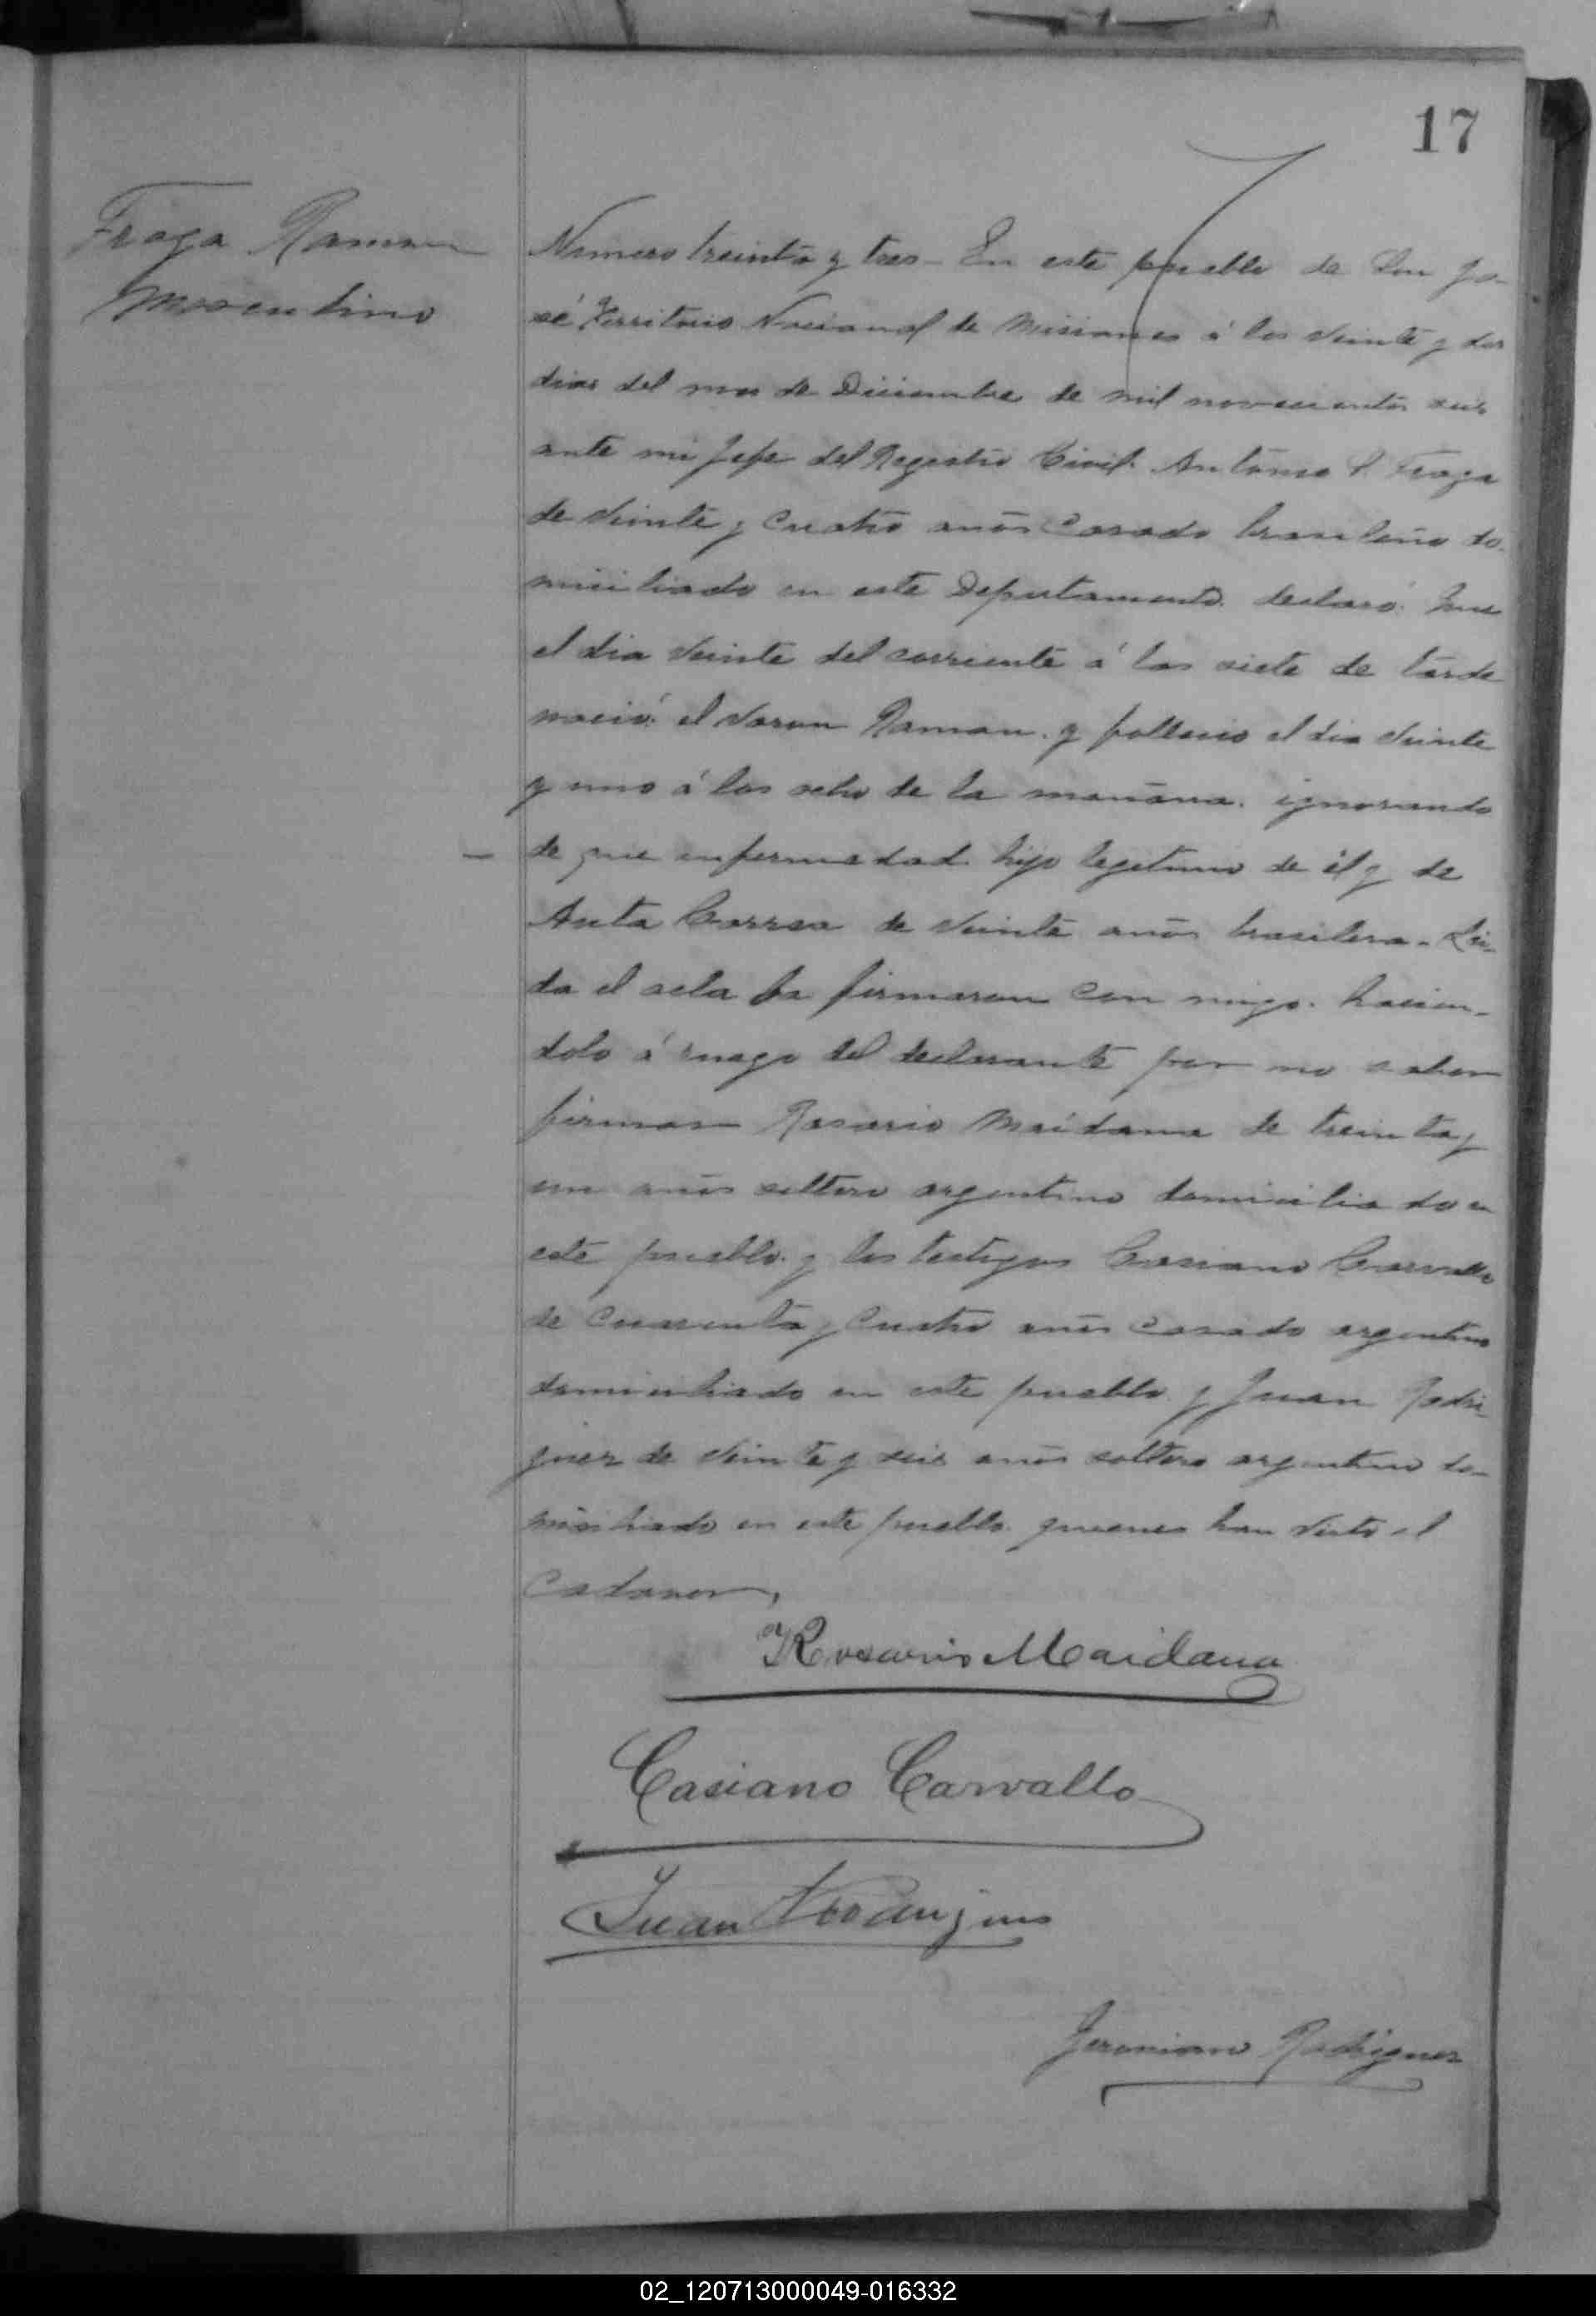 17
Fraga Ramon
Masculino
Numero treinta y tres - En este pueblo de San Jo-
sé Territorio Nacional de Misiones á los veinte y dos
dias del mes de Diciembre de mil novecientos seis
ante mi Jefe del Registro Civil. Antonio P. Fraga
de veinte y cuatro años casado brasileño do-
miciliado en este Departamento. declaró. Que
el dia veinte del corriente á las siete de tarde
nació el varon Ramon. y fallecio el dia veinte
y uno á las ocho de la mañana. ignorando
de que enfermedad hijo legitimo de él y de
Correa de veinte años brasilera. Lei-
da el acta la firmaron con migo. hacien-
dolo á ruego del declarante por no saber
firmar Rosario Maidana de treinta y
un años soltero argentino domiciliado en
este pueblo. y los testigos Casiano Carvallo
de cuarenta y cuatro años casado argentino
domiciliado en este pueblo y Juan Rodri-
guez de veinte y seis años soltero argentino do-
miciliado en este pueblo. quienes han visto el
cadaver,
Rosario Maidana
Casiano Carvallo
Juan
Rodriguez
02_120713000049-016332